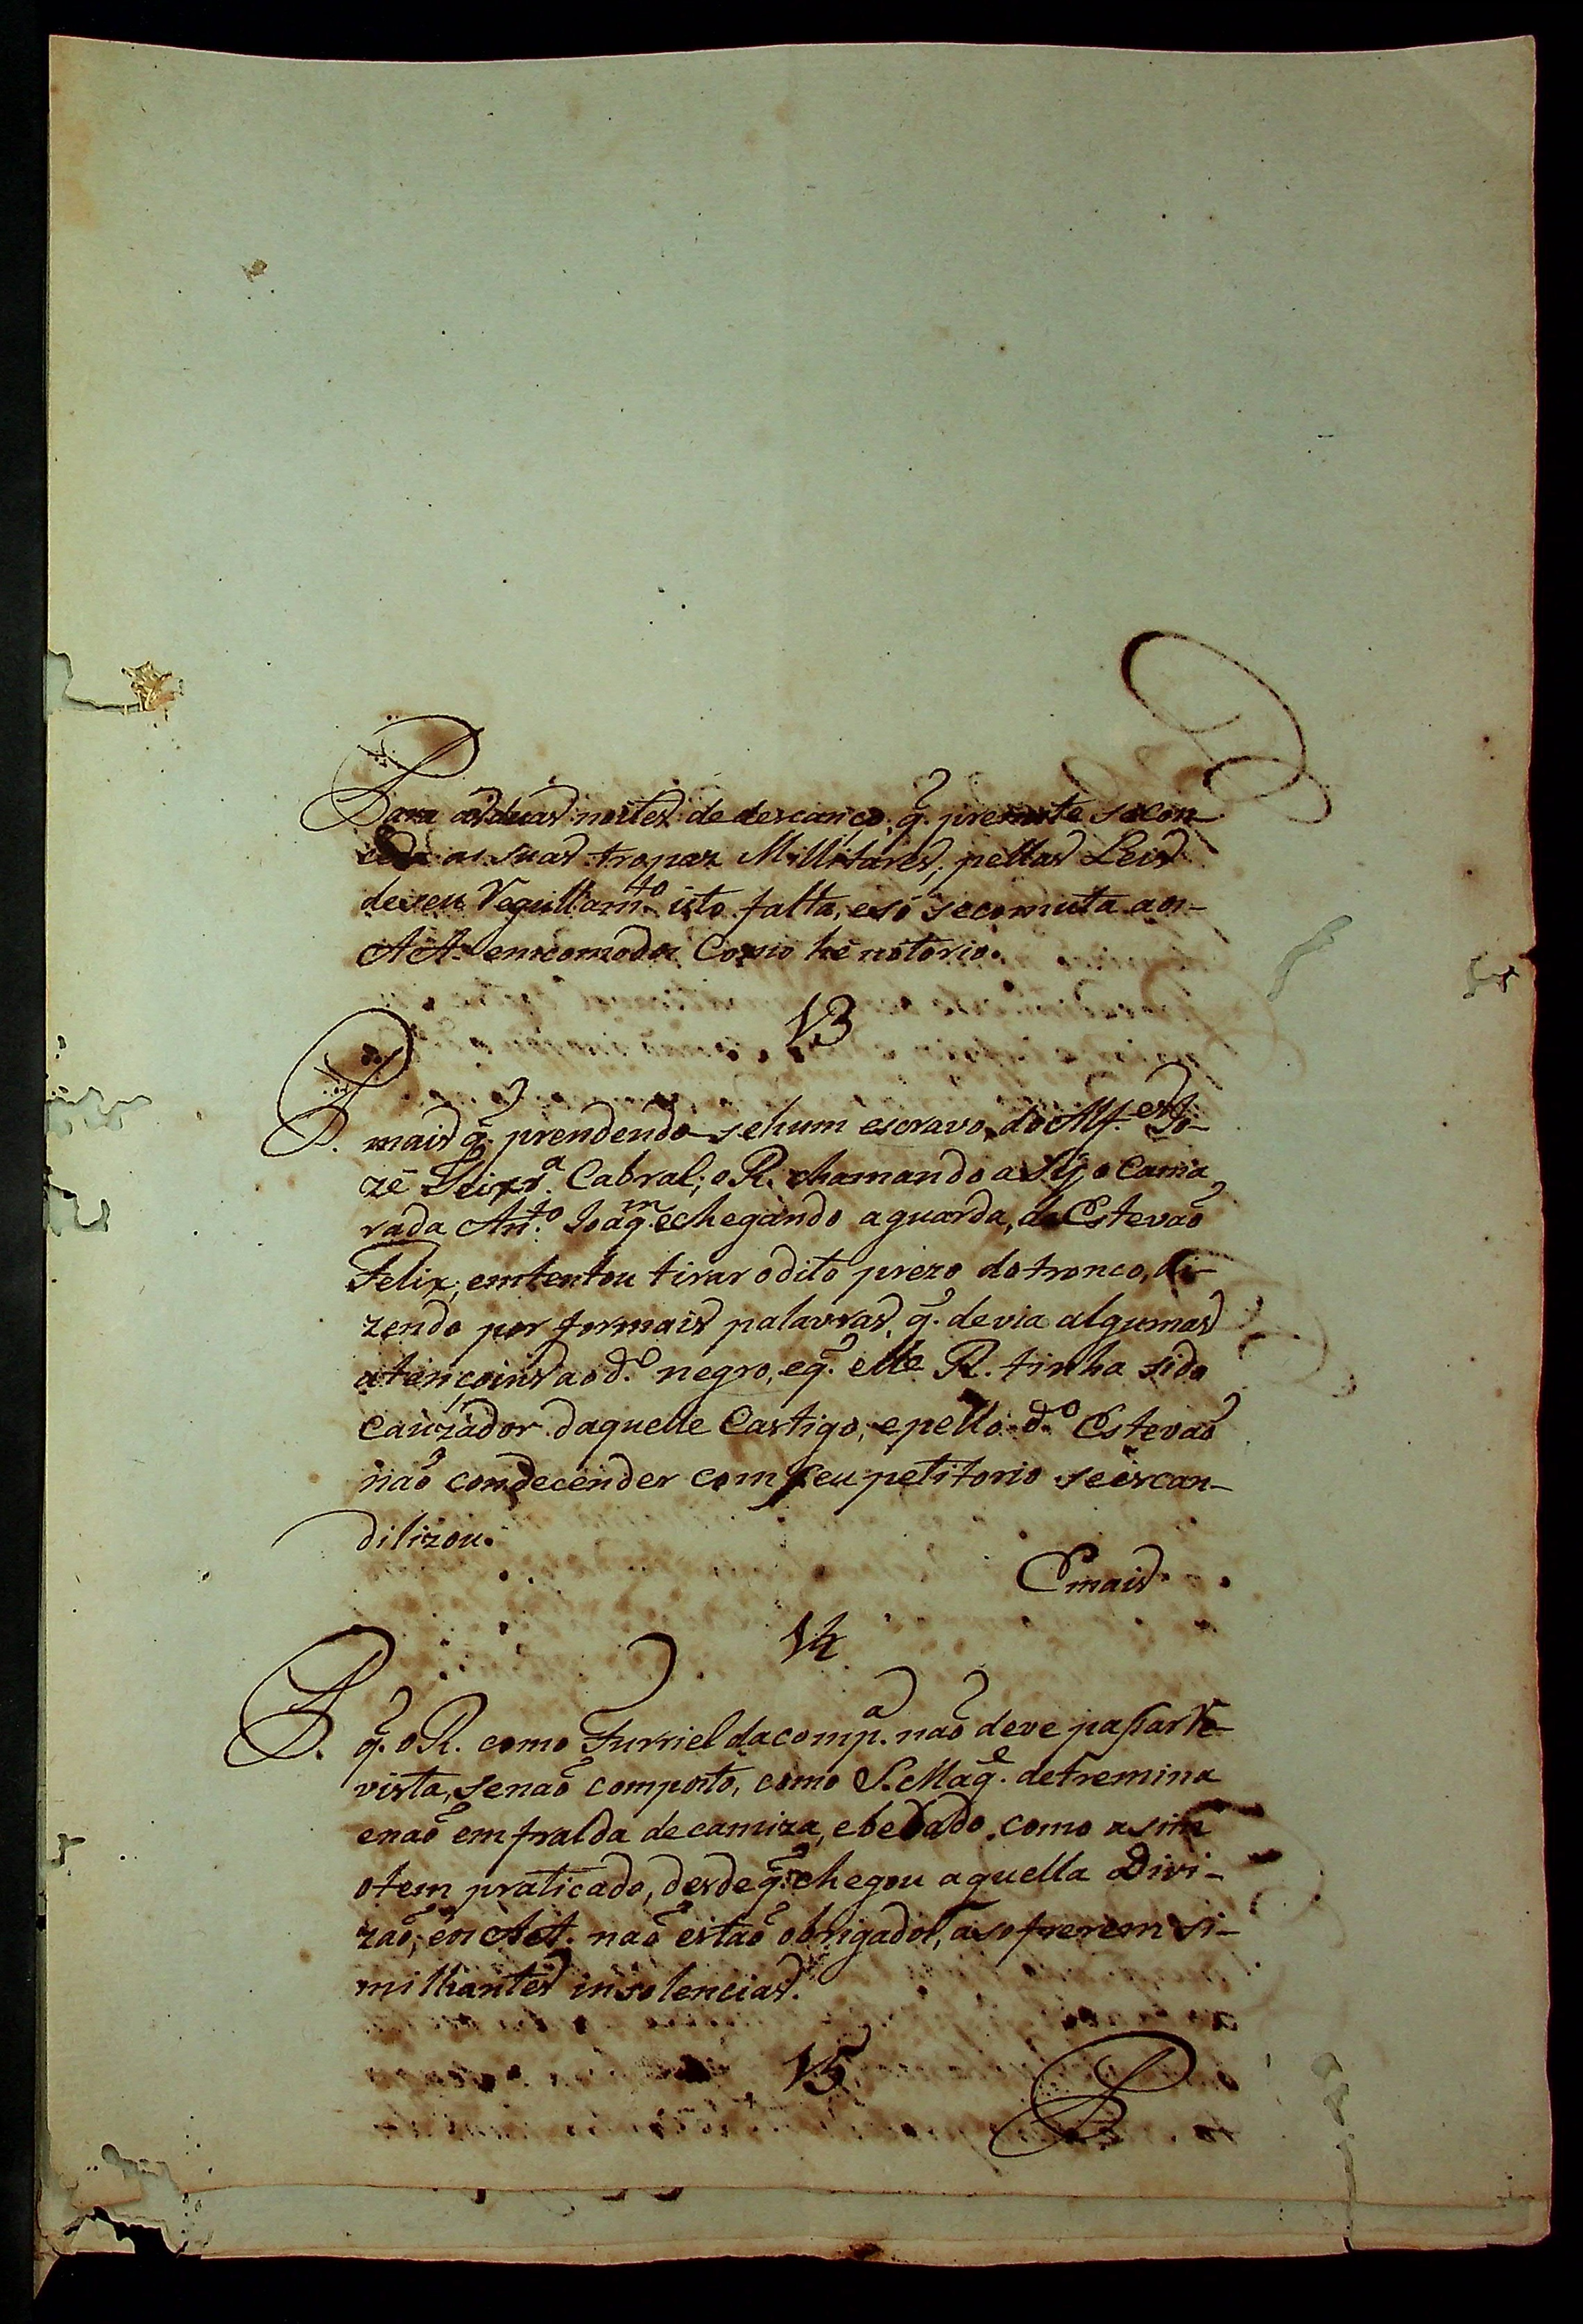 Para as duas noites de descanço, q̃. premite se con-
ceda as suas tropaz Millitares, pellas Leis
de seu Regullam.to isto falta, e só se comuta aos
AA. emcomodos Como hé nótorio.
13
P. mais q̃. prendendo-se hum escravo, do Alf.es Jo-
zé Teixr.a Cabral; o R. chamando a Sy, o Cama
rada Ant.o Joaq.m e chegando a guarda, de Estevaõ
Felix, emtentou tirar o dito prezo do tronco, di-
zendo por formais palavras, q̃. devia algumas
atençoins ao d.o negro, e q̃. elle R. tinha sido
cauzador daquelle Castigo, e pello d.o Estevaõ
naõ condecender com seu petitorio se escan-
dilizou.
E mais
14
P. q̃. o R. como Furriel da comp.a naõ deve passar Re-
vista, senaõ composto, como S. Mag.e detremina
e naõ em fralda de camiza, e bebado, como asim
o tem praticado, desde q̃. chegou aquella Divi-
zaõ, e os AA. naõ estaõ obrigados, a sofrerem si-
milhantes insolencias.
15
P.